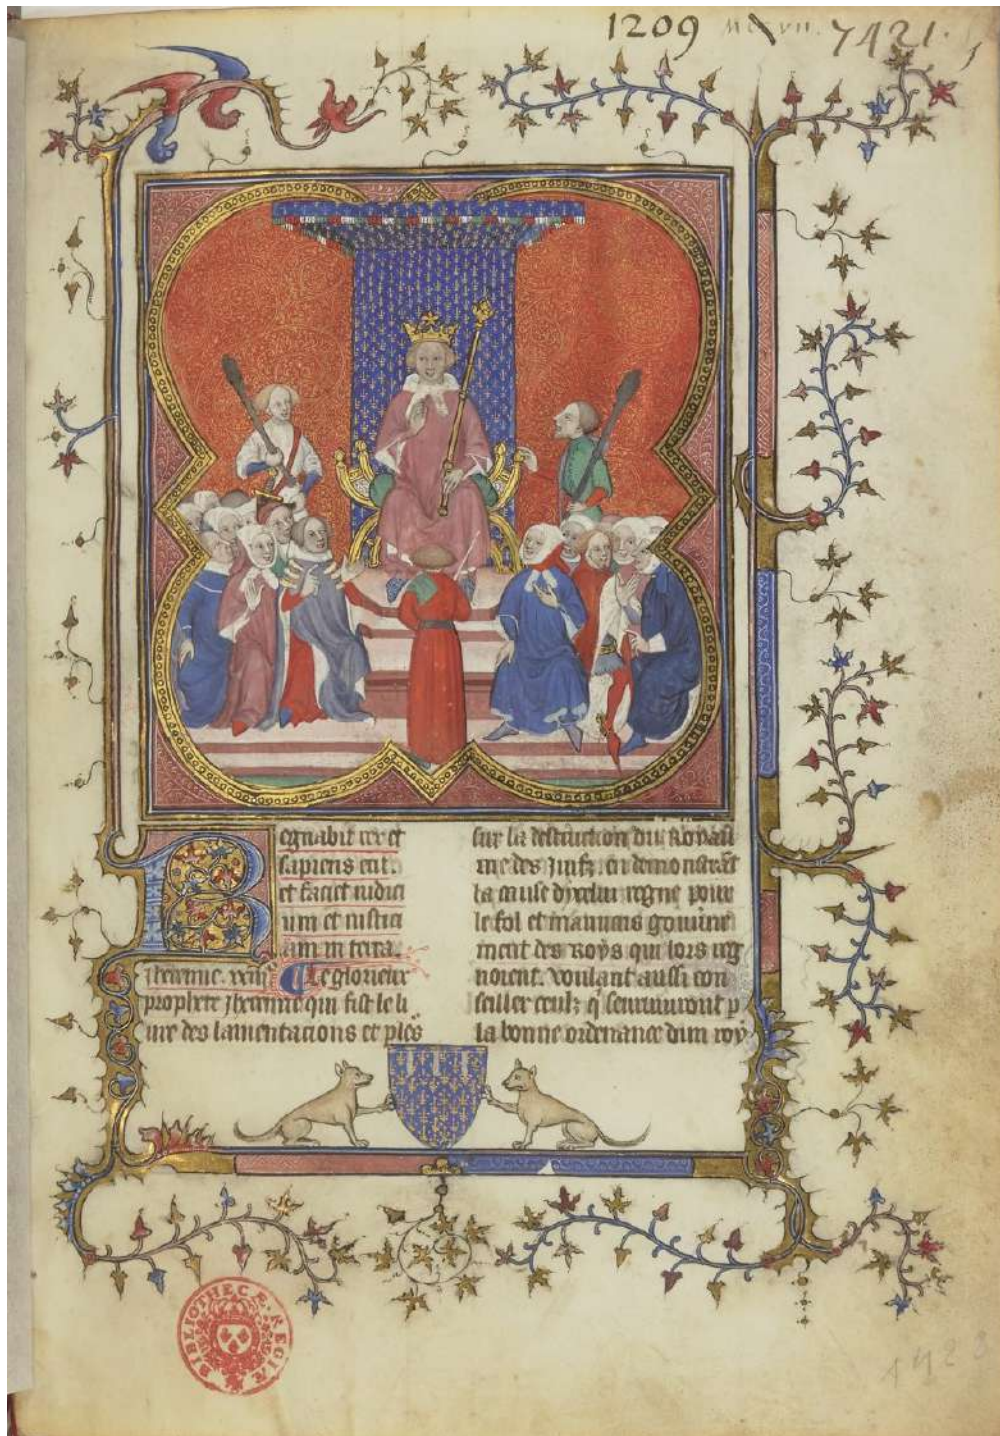 1209 7421. 5
egnabit rex et
sapiens erit.
et faciet iudici
um et iusticı
am in terra.
Iheremie. xxiii. Le glorieux
prophete Iheremie qui fist le li
ure des lamentacions et ples
sur la destruction du Royau
me des Juifz. en demonstrãt
la cause dycelui regne pour
le fol et mauuais gouũne
ment des Roys qui lors reg
noient. voulant aussi con
seiller ceulz q̃ senuiuront p
la bonne ordenance dun roy
BIBLIOTHECÆ REGIÆ